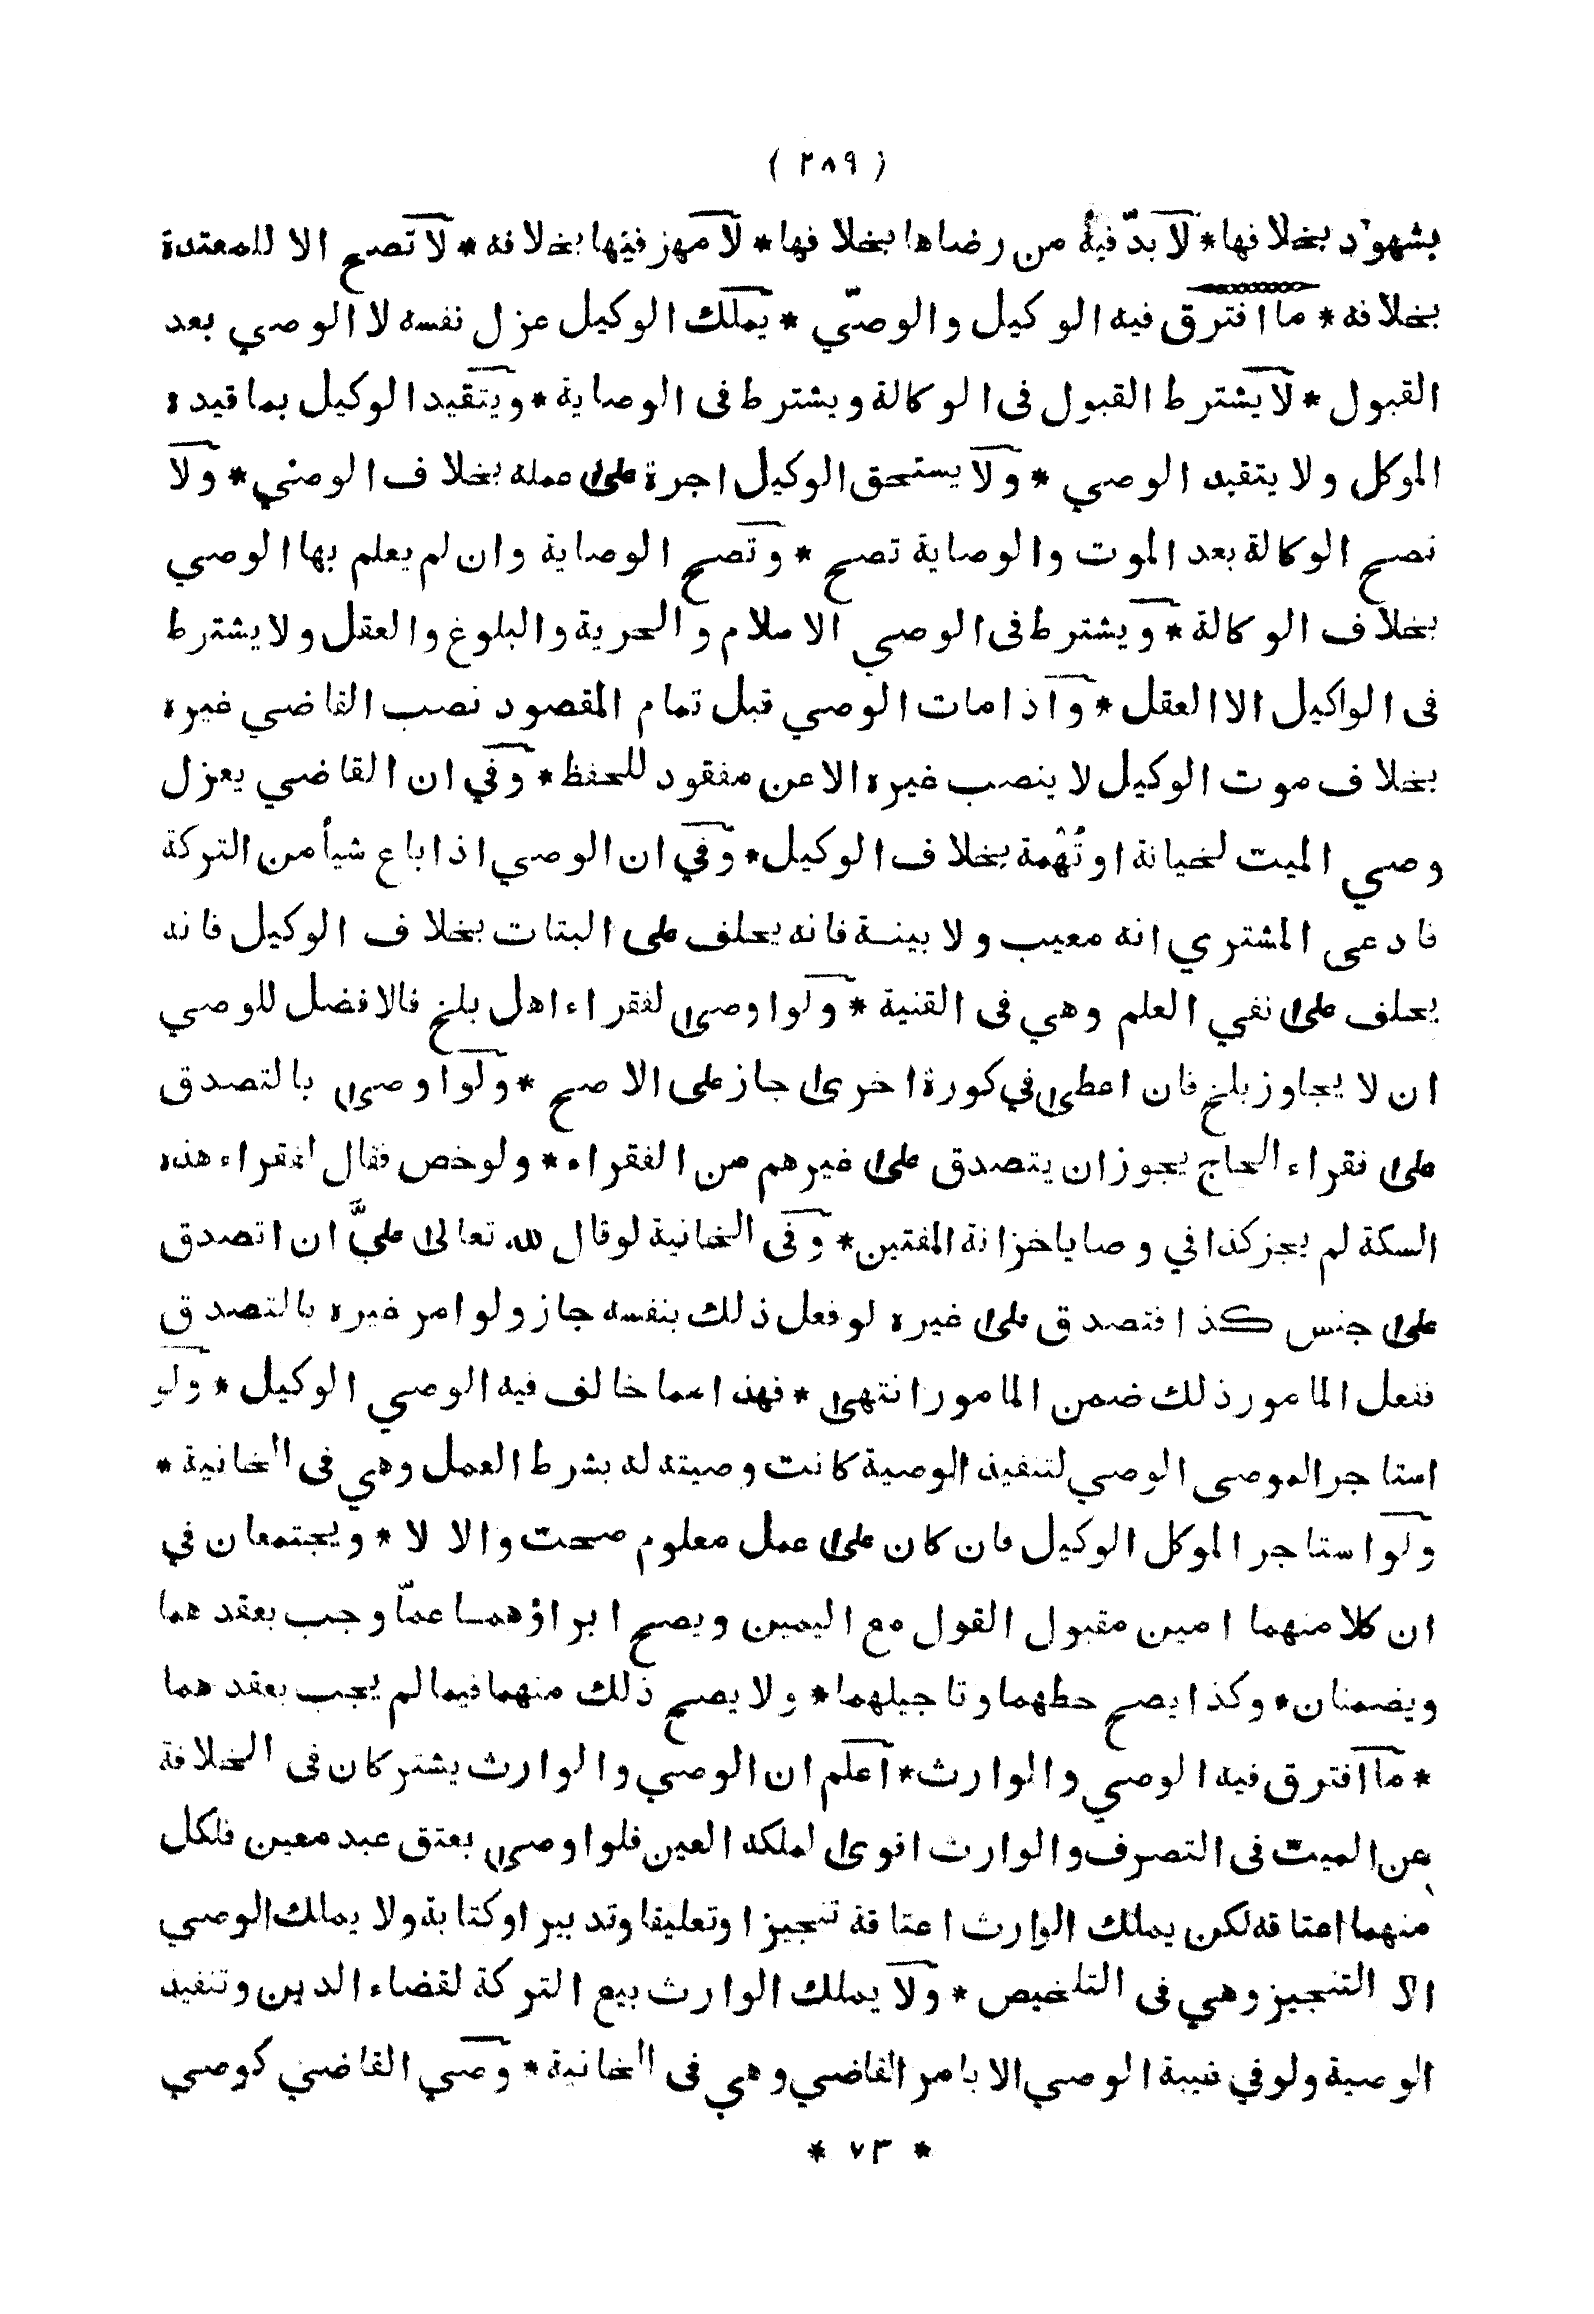 ( ٢٨٩ )
بشهود بخلافها * لا بدّ فيه من رضاها بخلافها * لا مهر فيها بخلافه * لا تصح الا للمعتدة
بخلافه * ما افترق فيه الوكيل والوصيّ * يملك الوكيل عزل نفسه لا الوصي بعد
القبول * لا يشترط القبول فى الوكالة ويشترط فى الوصاية * ويتقيد الوكيل بما قيده
الموكل ولا يتقيد الوصي * ولا يستحق الوكيل اجرة على عمله بخلاف الوصي * ولا
تصح الوكالة بعد الموت والوصاية تصح * وتصح الوصاية وان لم يعلم بها الوصي
بخلاف الوكالة * ويشترط فى الوصي الاسلام والحرية والبلوغ والعقل ولا يشترط
فى الواكيل الا العقل * واذا مات الوصي قبل تمام المقصود نصب القاضي غيره
بخلاف موت الوكيل لا ينصب غيره الا عن مفقود للحفظ * وفي ان القاضي يعزل
وصي الميت لخيانة او تُهْمة بخلاف الوكيل * وفي ان الوصي اذا باع شيأ من التركة
فادعى المشتري انه معيب ولا بينة فانه يحلف على البتات بخلاف الوكيل فانه
يحلف على نفي العلم وهي فى القنية * ولو اوصى لفقراء اهل بلخ فالافضل للوصي
ان لا يجاوز بلخ فان اعطى في كورة اخرى جاز على الاصح * ولو اوصى بالتصدق
على فقراء الحاج يجوز ان يتصدق على غيرهم من الفقراء * ولو خص فقال لفقراء هذه
السكة لم يجز كذا في وصايا خزانة المفتين * وفى الخانية لو قال لله تعالى عليَّ ان اتصدق
على جنس كذا فتصدق على غيره لو فعل ذلك بنفسه جاز ولو امر غيره بالتصدق
ففعل المامور ذلك ضمن المامور انتهى * فهذا مما خالف فيه الوصي الوكيل * ولو
استاجر الموصى الوصي لتنفيذ الوصية كانت وصيته له بشرط العمل وهي فى الخانية *
ولو استاجر الموكل الوكيل فان كان على عمل معلوم صحت والا لا * ويجتمعان في
ان كلا منهما امين مقبول القول مع اليمين ويصح ابراؤهما عمّا وجب بعقدهما
ويضمنان * وكذا يصح حطهما وتاجيلهما * ولا يصح ذلك منهما فيما لم يجب بعقدهما
* ما افترق فيه الوصي والوارث * اعلم ان الوصي والوارث يشتركان فى الخلافة
عن الميت فى التصرف والوارث اقوى لملكه العين فلو اوصى بعتق عبد معين فلكل
منهما اعتاقه لكن يملك الوارث اعتاقه تنجيزا وتعليقا وتدبيرا وكتابة ولا يملك الوصي
الا التنجيز وهي فى التلخيص * ولا يملك الوارث بيع التركة لقضاء الدين وتنفيذ
الوصية ولو في غيبة الوصي الا بامر القاضي وهي فى الخانية * وصي القاضي كوصي
* ٧٣ *